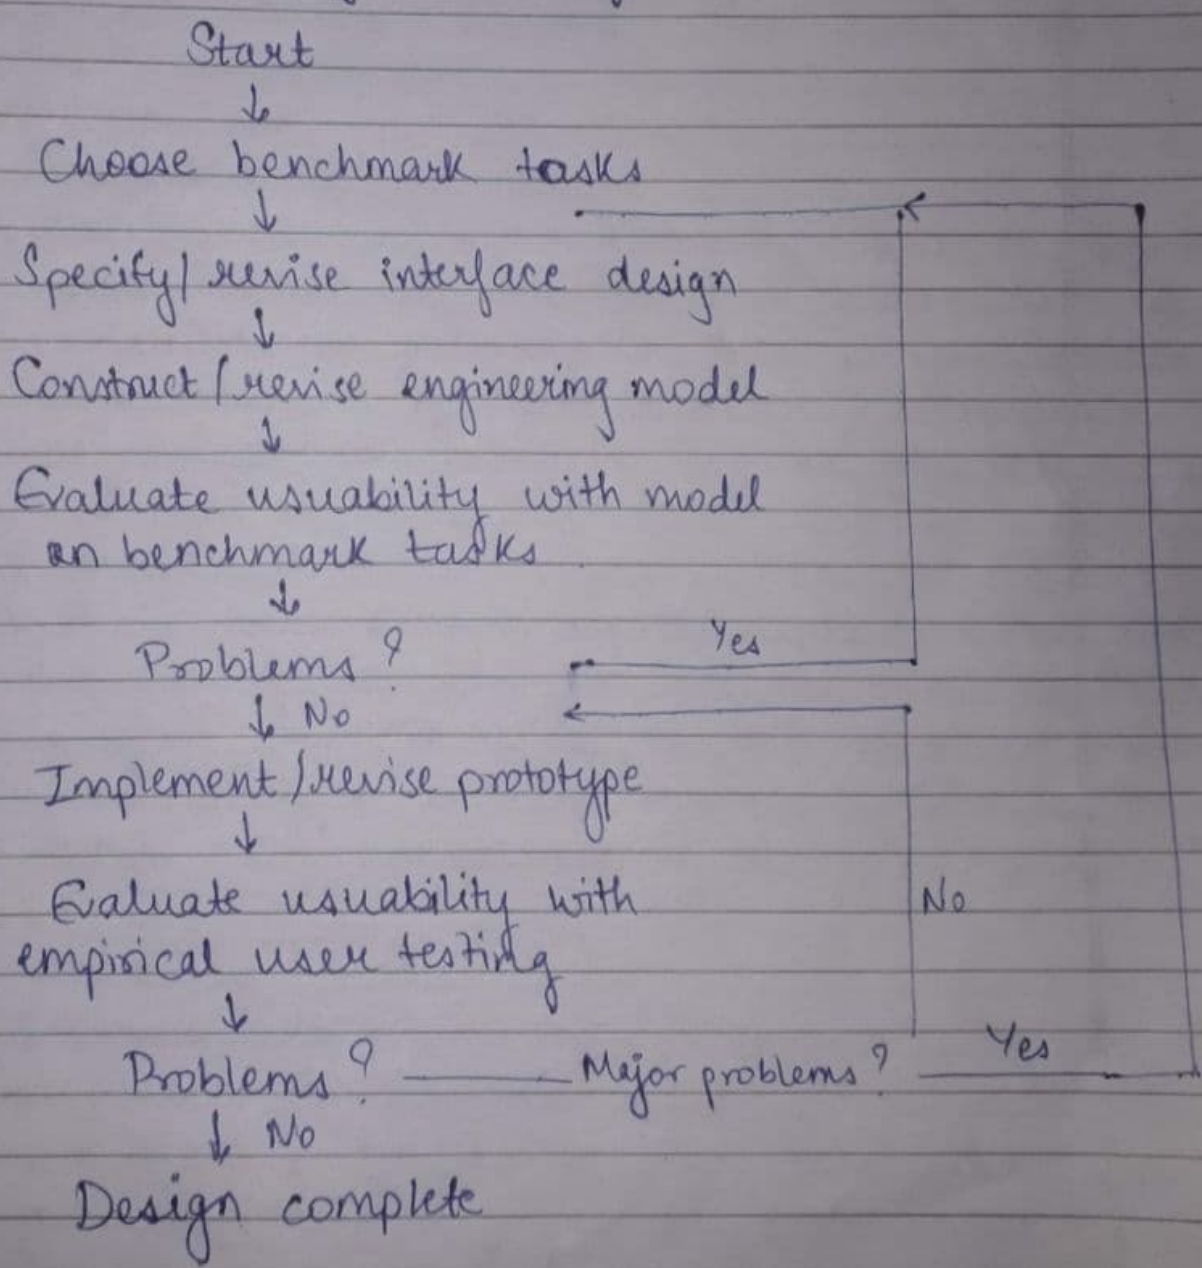 Start
↓
Choose benchmark tasks
↓
Specify/ revise interface design
↓
Construct/revise engineering model
↓
Evaluate usuability with model
an benchmark tasks
↓
Problems? Yes
↓ No
Implement/revise prototype
↓
Evaluate usuability with
No
empirical user testing
↓
Problems? Major problems? Yes
↓ No
Design complete